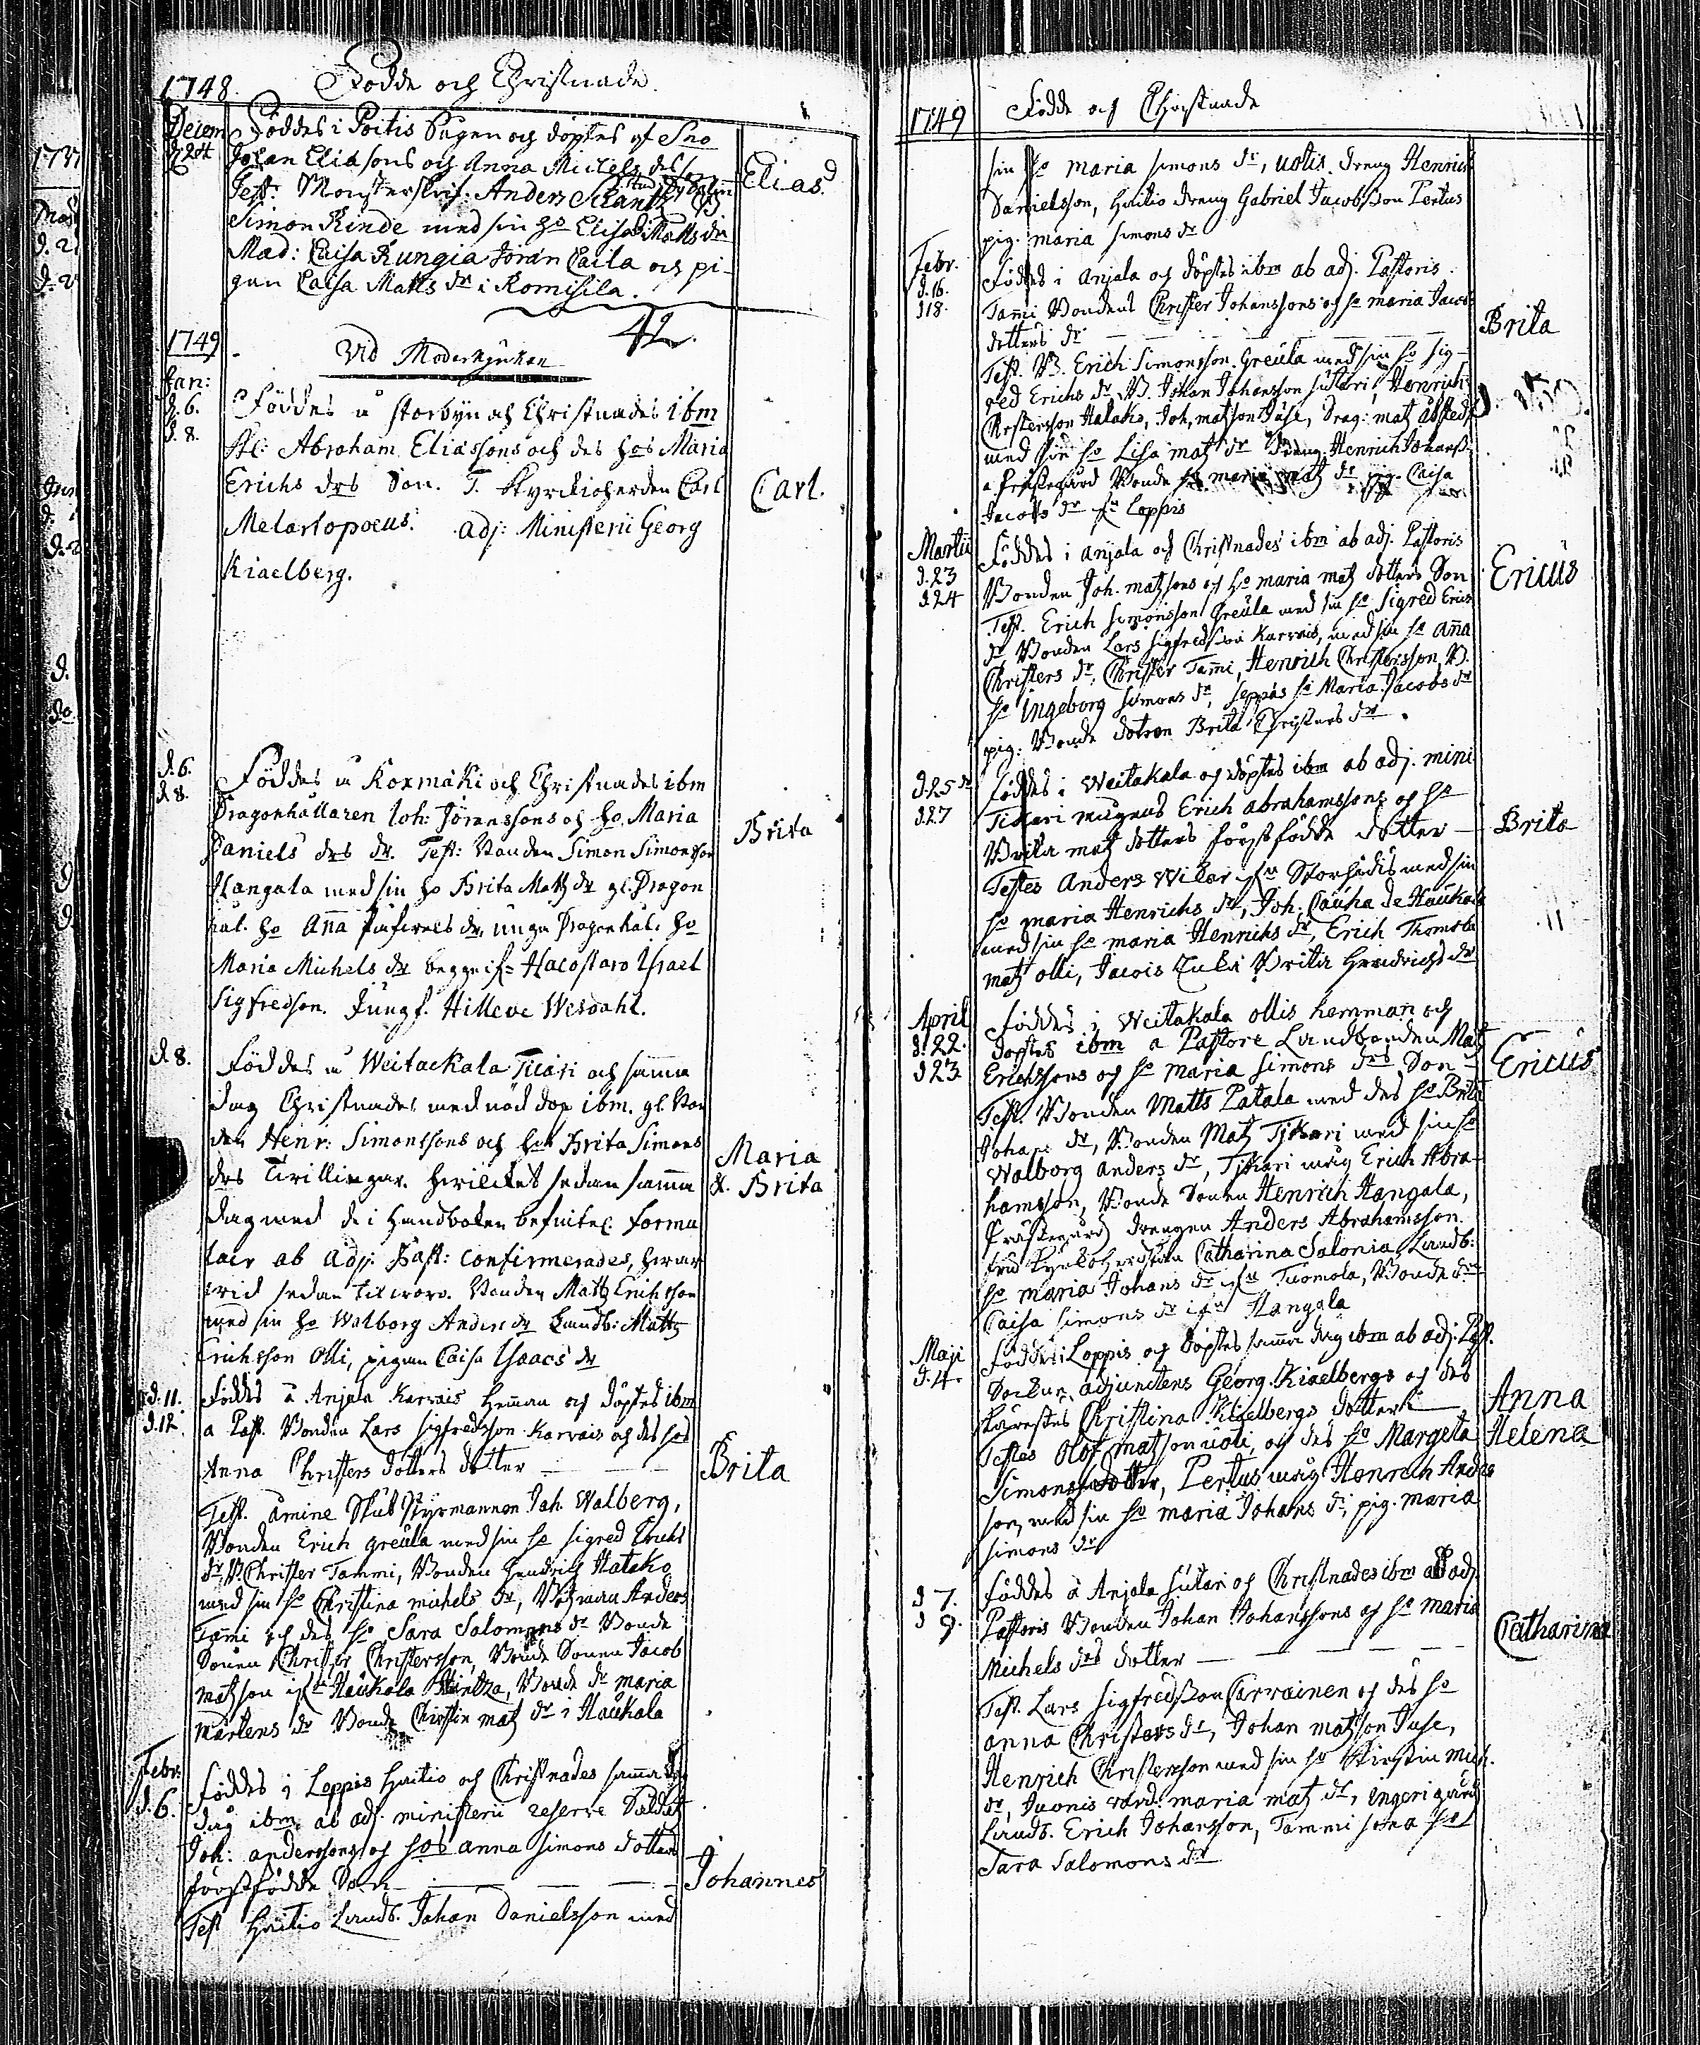 1748. Födde och Christnade.
Decem
d. 24
Föddes i Poitis Sågen och döptes af Sno
Johan Eliasons och Anna Michels drs
Elias.
Test: Mönsterskrif: Anders Schantz
Simon Rinde med sin ho Elisa Matts dr
Mad: Caisa Rungia Jöran Caila och pi-
gan Caisa Matts dr i Komisila.
42.
1749
Vid Moderkyrkan
Jan:
d. 6.
d. 8.
Föddes a Storbyn och Christnades ibm
Abraham Eliassons och des hos Maria
Erichs drs Son. T. Kyrckioherden Carl
Carl.
Melartopoeus. adj: Ministerii Georg
Kiaelberg.
d. 6.
d. 8.
Föddes a Kormäki och Christnades ibm
Dragonhållaren Joh: Jöranssons och ho. Maria
Brita
Daniels drs dr. Test: Bonden Simon Simonsson
Hangala med sin ho Brita Matts dr gl. Dragon
hål. ho Anna dr, unga Dragonhål. ho
Maria Michels dr Israel
Sigfredson. Jungf. Hilleve Wesdahl.
d. 8.
Föddes a Weitackala Tikari och samma
dag Christnades med nöd dop ibm. gl. Bon
den Henr: Simonssons och hos Brita Simons
Maria
drs Tvillingar. hvilcket sedan samma
& Brita
dag med de i Handboken befintel: formu
lair ab Adj. Past: confirmerades, hwar
wid sedan til woro. Bonden Matts Erichsson
med sin ho Walborg Anders dr Landb: Matts
Erichsson Olli, pigan Caisa Isaacs dr
d. 11.
d. 12.
Föddes a Anjala Karvais Hemman och döptes ibm
a Past. Bonden Lars Sigfredsson Karvais och des hos
Anna Christers dotters dotter
Brita
Test. Styrmannen Joh. Walberg,
Bonden Erich Greula med sin ho Sigred Erichs
dr, B. Christer Tammi, Bonden Hendrich Hatako
med sin ho Christina Michels dr, Anders
Tammi och des ho Sara Salomons dr Bonde
Sonen Christer Christersson, Bonde Sonen Jacob
Matsson ifrn Haukala Hintza, Bonde dr Maria
Mårtens dr Bonde Christin mats dr i Haukala
Febr.
d. 6.
Föddes i Loppis Huitio och Christnades samma
dag ibm ab adj. ministerii reserve Soldat
Joh: anderssons och hos anna Simons dotters
förstfödde Son
Johannes
Test Huitio Landb. Johan Danielsson med
1749 Födde och Christnade
sin ho Maria Simons dr, Uotis dreng Henrich
Danielsson, Huitio dreng Gabriel Jacobsson Pertus
pig. maria simons dr
Febr.
d. 16.
d 18.
Föddes i Anjala och döptes ibm ab adj. Pastoris
Tammi Bondens Christer Johanssons och ho maria Jacobs
dotters dr
Brita
Test. B. Erich Simonsson Greula med sin ho Sig-
red Erichs dr B. Johan Johansson Sutari, Henrich
Christersson Halako, Joh. matsson Juse, Drag: mats
med sin ho Lisa mats dr Dreng Henrich Johanss.
a Prästegård Bonde ho maria mats dr pig. Caisa
Jacobs dr frn Loppis
Martii
d. 23
d 24
Föddes i Anjala och Christnades ibm ab adj. Pastoris
Bonden Joh. matssons och ho maria mats dotters Son
Ericus
Test. Erich Simonsson Greula med sin ho Sigred Erics
dr Bonden Lars Sigfredsson Karvais, med sin ho Anna
Christers dr, Christer Tammi, Henrich Christersson B.
ho Ingeborg Simons dr, Seppäs ho Maria Jacobs dr
pig: Bonde dotren Brita Christers dr.
d. 25
d 27
Föddes i Weitakala och döptes ibm ab adj. mini
Tikari mugens Erich abrahamssons och ho
Brita mats dotters förstfödde dotter
Brita
Testes Anders Wikar frn Storhädis med sin
ho maria Henrichs dr, Joh. Cauha de Haukala
med sin ho maria Henrichs dr, Erich Thomola
mats olli, Brita Hendrichs dr
April
d. 22.
d 23
Föddes i Weitakala ollis hemman och
döptes ibm a Pastore Landbonden Mats
Erichssons och ho maria Simons drs Son
Ericus
Test. Bonden Matts Patala med des ho Brita
Johans dr, Bonden Mats Tikari med sin ho
Walborg anders dr, Tikari måg Erich Abra-
hamsson, Bonde Sonen Henrich Hangala,
Prästegårds drengen Anders Abrahamsson
Catharina Salonia Landb:
ho maria Johans dr frn Tuomola, Bonde dr
Caisa simons dr ifrn Hangala
Maji
d. 4.
Föddes i Loppis och döptes samma dag ibm ab adj. Past.
adjunctens Georg Kiaelbergs och des
Kärestes Christina Kiaelbergs dotter
Anna
Helena
Testes Olof matsson uoti, och des ho Margeta
Simons dotter, Pertus måg Henrich Anders
son, med sin ho maria Johans dr, pig. maria
simons dr
d 7.
d 9.
Föddes a Anjala Sutari och Christnades ibm ab adj.
Pastoris Bonden Johan Johanssons och ho maria
Michels drs dotter
Catharina
Test. Lars Sigfredsson Carvainen och des ho
anna Christers dr, Johan matsson Juse,
Henrich Christersson med sin ho Kirstin Mich.
dr, Juonis maria mats dr, Ingeri
Landb. Erich Johansson, Tammi ho
Sara Salomons dr